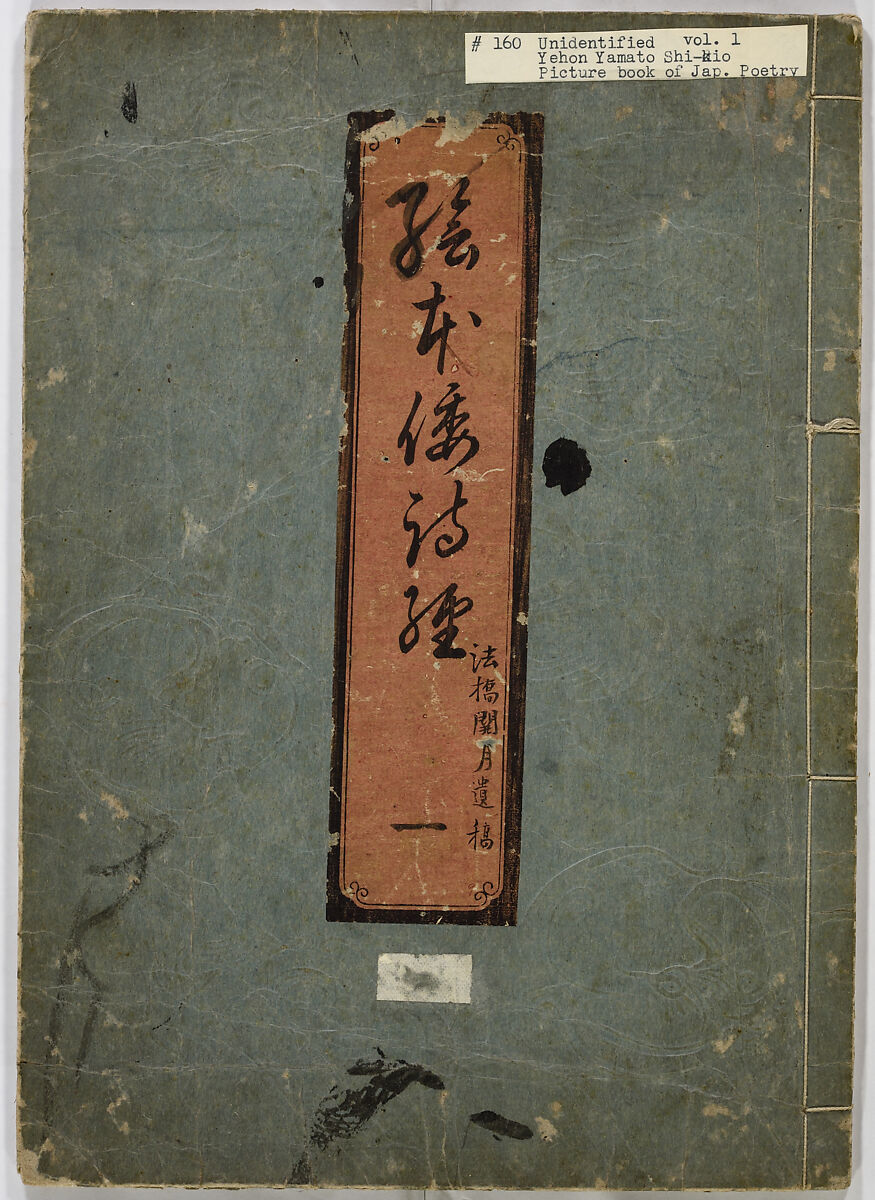 # 160 Unidentified vol. 1
Yehon Yamato Shi-kio
Picture book of Jap. Poetry
繪本倭詩經
法橋關月遺稿
一